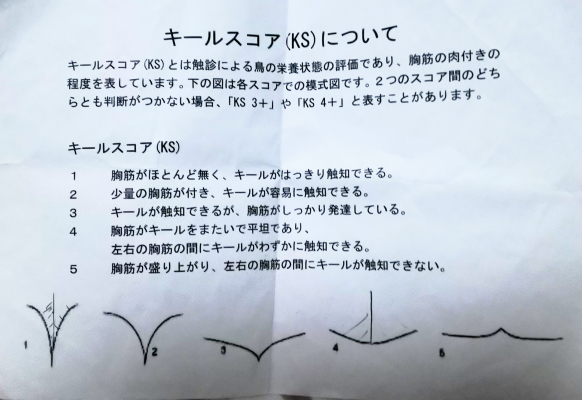 キールスコア(KS)について
キールスコア(KS)とは触診による鳥の栄養状態の評価であり、胸筋の肉付きの
程度を表しています。下の図は各スコアでの模式図です。２つのスコア間のどち
らとも判断がつかない場合、「KS 3＋」や「KS 4＋」と表すことがあります。
キールスコア(KS)
1 胸筋がほとんど無く、キールがはっきり触知できる。
2 少量の胸筋が付き、キールが容易に触知できる。
3 キールが触知できるが、胸筋がしっかり発達している。
4 胸筋がキールをまたいで平坦であり、
左右の胸筋の間にキールがわずかに触知できる。
5 胸筋が盛り上がり、左右の胸筋の間にキールが触知できない。
1 2 3 4 5